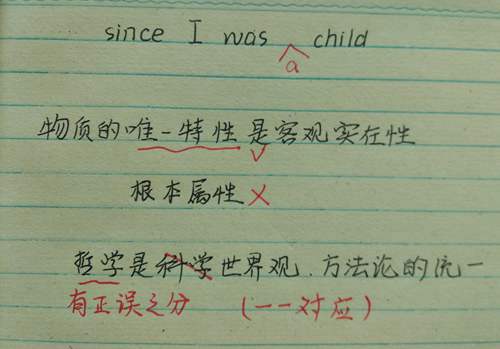 since I was child
a
物质的唯一特性是客观实在性
根本属性
哲学是科学世界观.方法论的统一
有正误之分 (一一对应)